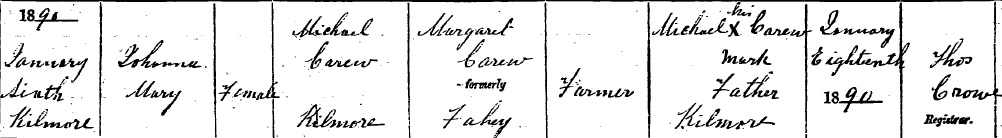 1890
January
Sixth
Kilmore
Johanna
Mary
Female
Michael
Carew
Kilmore
Margaret
Carew
formerly
Fahey
Farmer
Michael his X Carew
mark
Father
Kilmore
January
Eighteenth
1890
Thos
Crowe
Registrar.